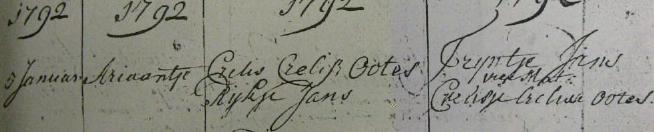 1792 1792 1792 1792
5 Januari Ariaantje Crelis Crelisz Ootes Tryntje Jans
Rykje Jans
Crelisje Crelisse Ootes